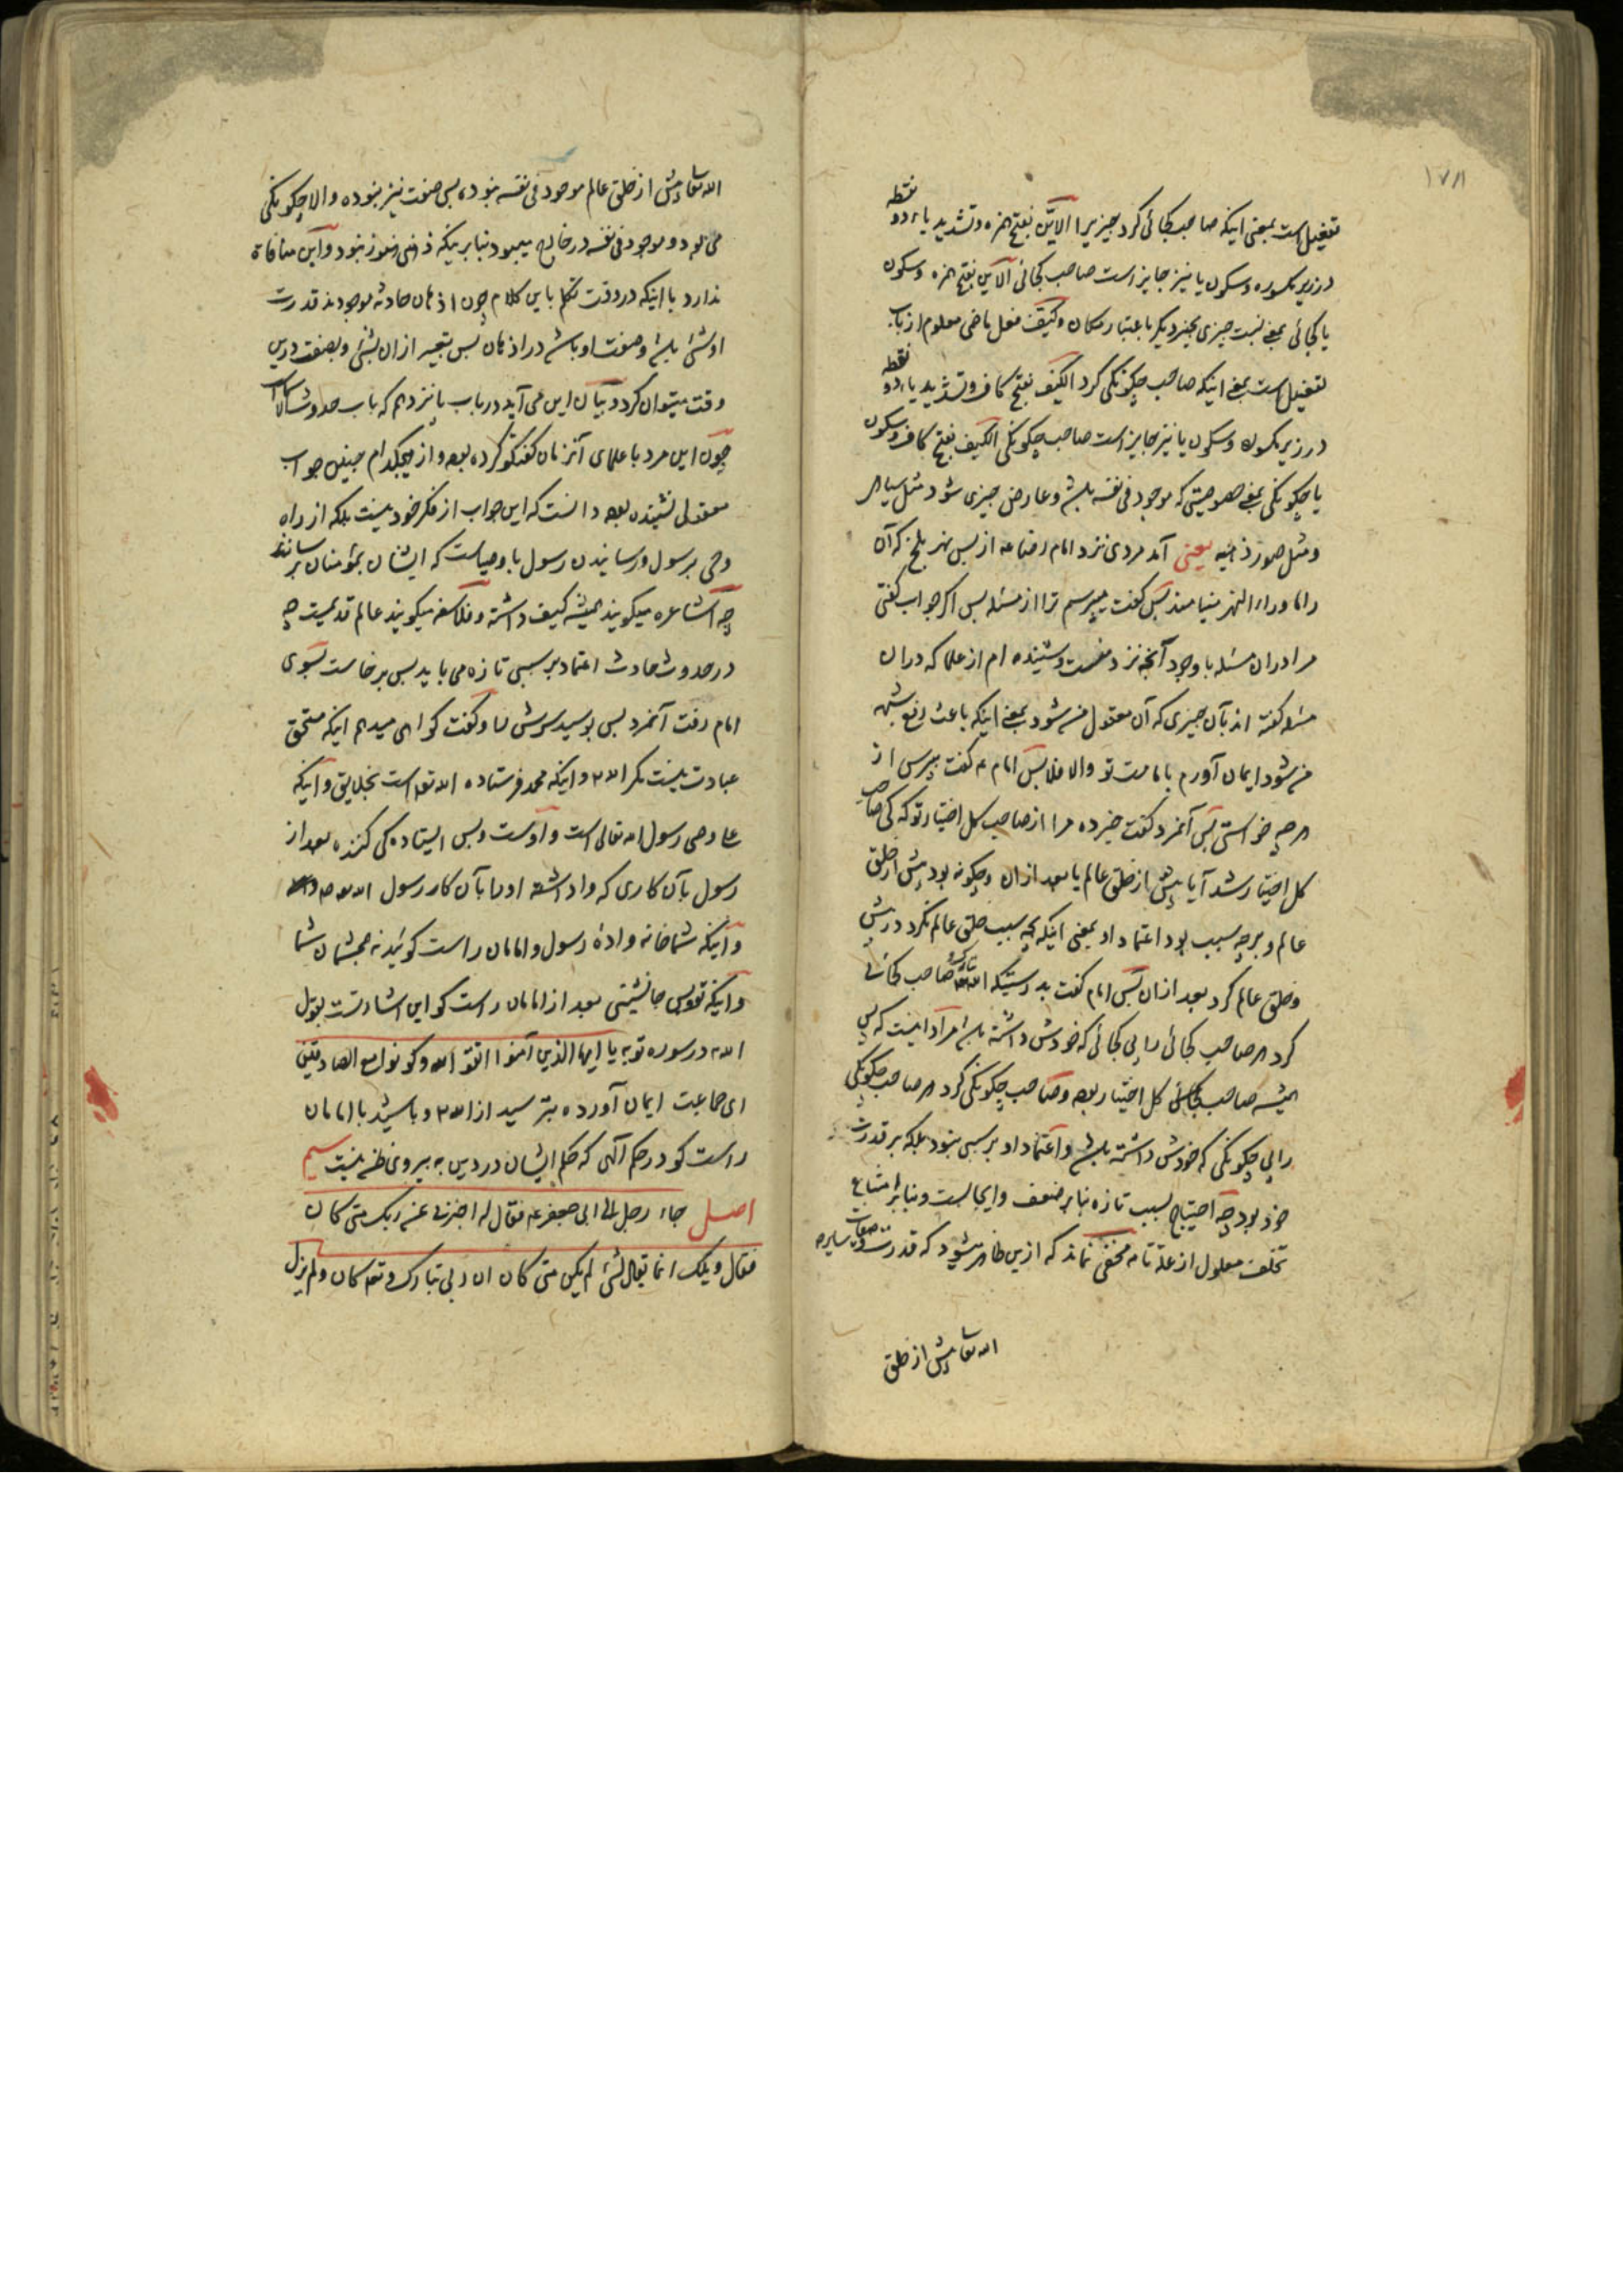 ۱۷۸
نقطه
تفعیل است بمعنی اینکه صاحب کجائی کرد چیزیرا الایّن بفتح همزه و تشدید یاء دو
در زیر مکسوره و سکون یا نیز جایز است صاحب کجائی الاین بفتح همزه و سکون
یا کجائی یعنی نسبت چیزی بچیز دیگر باعتبار مکان وکیّف فعل ماضی معلوم از باب
نقطه
تفعیل است یعنی اینکه صاحب چکونکی کرد الکیف بفتح کاف و تشدید یاء دو
در زیر مکسوره و سکون یا نیز جایز است صاحب چکونکی الکیف بفتح کاف و سکون
یا چکونکی یعنی خصوصیتی که موجود فی نفسه باشد و عارض چیزی شود مثل سیاهی
و مثل صور ذهنیه یعنی آمد مردی نزد امام رضا ع از پس نهر بلخ که آن
را ما وراء النهر مینامند پس کفت میپرسم ترا از مسئله پس اکر جواب کفتی
مرا در ان مسئله با وجود آنچه نزد منست و شنیده ام از علما که در ان
مسئله کفته اند بآن چیزی که آن معقول من شود یعنی اینکه باعث رفع شبهه
من شود ایمان آورم بامامت تو والا فلا پس امام ع کفت بپرس از
هر چه خواستی پس آنمرد کفت خبر ده مرا از صاحب کل اختیار تو که کی صاحب
کل اختیار شد آیا پیش از خلق عالم یا بعد از ان و چکونه بود پیش از خلق
عالم و بر چه سبب بود اعتماد او یعنی اینکه بچه سبب خلق عالم نکرد در پیش
و خلق عالم کرد بعد از ان پس امام کفت بدرستیکه الله تبارک و تعالی صاحب کجائی
کرد هر صاحب کجائی را بی کجائی که خودش داشته باشد مراد اینست که بی
همیشه صاحب کل اختیار بوده و صاحب چکونکی کرد هر صاحب چکونکی
را بی چکونکی که خودش داشته باشد و اعتماد او بر سببی نبود بلکه بر قدرت
خود بود چه احتیاج بسبب تازه بنا بر ضعف و ایجابست و بنا بر امتناع
تخلف معلول از علة تامه مخفی نماند که ازین ظاهر میشود که قدرت و صفات سایره
الله تعا پیش از خلق
الله تعا پیش از خلق عالم موجود فی نفسه نبوده پس صفت نیز نبوده والا چکونکی
می بود و موجود فی نفسه در خارج میبود بنا بر اینکه ذهنی هنوز نبود و این منافاة
ندارد با اینکه در وقت تکلم باین کلام چون اذهان حادثه موجودند قدرت
او شئ باشد و صفت او باشد در اذهان پس تعبیر از ان بشئ و بصفت درین
وقت میتوان کرد و بیان این می آید در باب پانزدهم که باب حدوث الاسماست
چون این مرد با علمای آنزمان کفتکو کرده بود و از هیچکدام چنین جواب
معقولی نشنیده بود دانست که این جواب از فکر خود نیست بلکه از راه
وحی برسول و رسانیدن رسول باوصیاست که ایشان بمؤمنان برسانند
چه اشاعره میکویند همیشه کیف داشته و فلاسفه میکویند عالم قدیمست چه
در حدوث حادث اعتماد بر سببی تازه می باید پس برخاست بسوی
امام رفت آنمرد پس بوسید سرش را و کفت کواهی میدهم اینکه مستحق
عبادت نیست مکر الله و اینکه محمد فرستاده الله تعالی است بخلایق و اینکه
علی وصی رسول الله تعالی است و اوست و بس ایستاده کی کننده بعد از
رسول بآن کاری که واداشته او را بآن کار رسول الله
و اینکه شما خانه واده رسول و امامان راست کوئید نه چشمان شما
و اینکه تویی جانشینی بعد از امامان راست کو این اشارتست بقول
الله در سوره توبه یا ایها الذین آمنوا اتقوا الله وکونوا مع الصادقین
ای جماعت ایمان آورده بترسید از الله و باشید با امامان
راست کو در حکم آلهی که حکم ایشان در دین به پیروی ظن نیست سیم
اصل جاء رجل الی ابی جعفر ع فقال له اخبرنی عن ربک متی کان
فقال ویلک انما یقال لشئ لم یکن متی کان ان ربی تبارک و تعالی کان ولم یزل